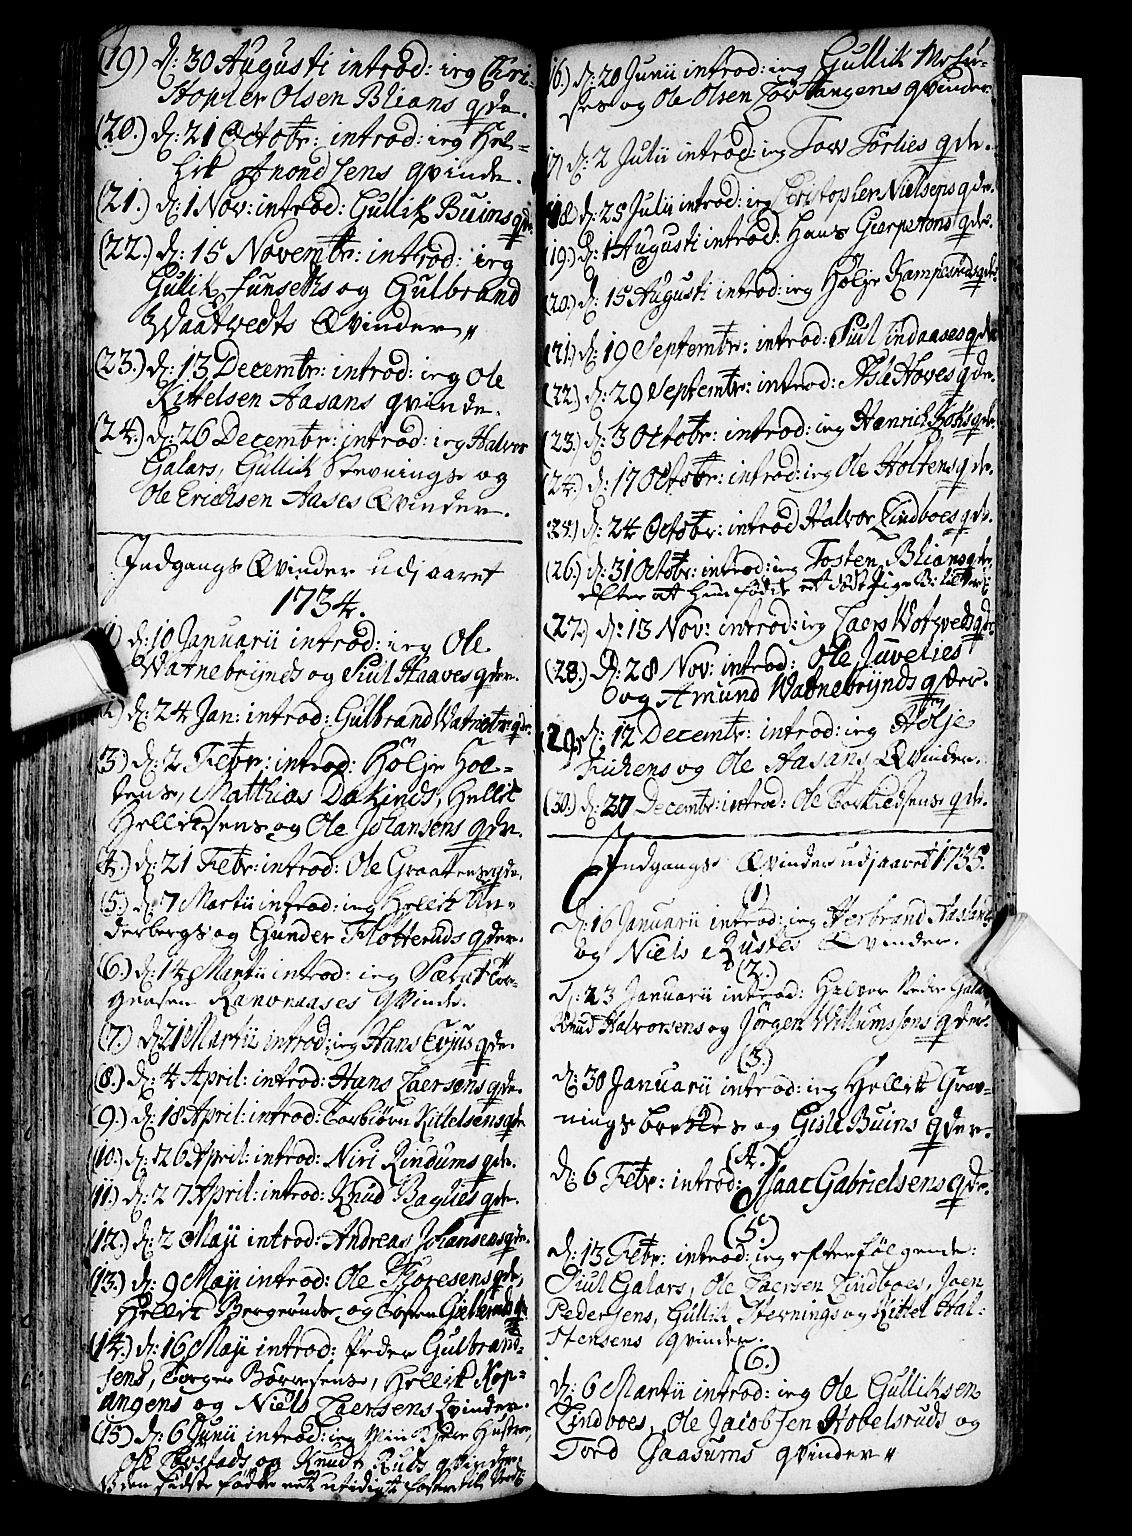 (19) d: 30 Augusti introd: ieg Chri-
stopher Olsen Blians qde.
(20.) d: 21 Octobr: introd: ieg Hel-
lik Anondsens qvinde.
(21.) d: 1 Nov: introd: Gullik Buins qde:
(22.) d: 15 Novembr: introd: ieg
Gullik Funseths og Gulbrand
Waatvedts Qvinder"
(23.) d: 13 Decembr: introd: ieg Ole
Kittelsen Aasans qvinde.
(24.) d: 26 Decembr: introd: ieg Halvor
Galars, Gullik Stevnings og
Ole Erichsen Aases Qvinder.
Indgangs Qvinder udj aaret
1734.
1) d: 10 Januarii introd: ieg Ole
Watnebrynds og Siul Haaves qder.
2) d: 24 Jan: introd: Gulbrand Watnebr: qde.
3) d: 2 Febr: introd: Hölje Hol-
tens, Matthias Dokinds, Hellik
Hellichsens og Ole Johansens qdr.
4.) d: 21 Febr: introd: Ole Graatens qde.
(5.) d: 7 Martii introd: ieg Hellik Un-
derbergs og Gunder Flötteruds qder.
(6.) d: 14 Martii introd: ieg
Ravnaases qvinde.
(7.) d: 21 Martii introd: ieg Hans Evjus qde.
(8.) d: 4 April: introd: Hans Larsens qde.
(9.) d: 18 April: introd: Torbiörn Kittelsens qde
(10.) d: 26 April: introd: Niri Rindums qde.
11.) d: 27 April: introd: Knud Bagaas qde.
(12.) d: 2 Maji introd: Andreas Johansens qde.
(13.) d: 9 Maji introd: Ole Thoresens qde,
Hellik Bergeruds og Tosten
(14.) d: 16 Maji introd: Peder Gulbrand-
sens, Torger Börresens, Hellik Kop-
angens og Niels Laersens Qvinder.
(15) d: 6 Junii introd: ieg Min Kiere Hustroe,
Ole og Knud Ruds qvinder.
NB den sidste fødde utidigt foster
16.) d: 20 Junii introd: ieg Gullik Mosu-
ses og Ole Olsen Torstangens qvinder
17) d: 2 Julii introd: ieg Tov Förlies qde.
18) d: 25 Julii introd: ieg Christopher Nielsens qde.
(19.) d: 1 Augusti introd: Hans Gierpetons qde.
(20.) d: 15 Augusti introd: ieg Hölje Kampesveds qde
(21.) d: 19 Septembr: introd: Siul Lindaases qde
(22.) d: 29 Septembr: introd: Asle Hoves qde.
(23.) d: 3 Octobr: introd: ieg Henrich Koks qde.
(24.) d: 17 Octobr: introd: ieg Ole Holtens qde.
25.) d: 24 Octobr: introd Halvor Lindboes qde.
(26.) d: 31 Octobr: introd: ieg Tosten Blians qde,
efter at hun fødde et
(27.) d: 13 Nov: introd: ieg Laers Wotvedts qde
(28.) d: 28 Nov: introd: Ole Juvelies
og Amund Watnebrynds qder.
(29.) d: 12 Decembr: introd: ieg Hölje
Fichens og Ole Aasans, Qvinder.
(30.) d: 27 Decembr: introd: Ole Torkildsens qde.
Indgangs Qvinder udj aaret 1735.
(1)
D: 16 Januarii introd: ieg Herbrand Haslands
og Niels Rustes Qvinder.
(2.)
d: 23 Januarii introd: Halvor Peder Galar,
Knud Halvorsens og Jörgen Willumssens qder.
(3.)
d: 30 Januarii introd: ieg Hellik Grav-
ningsbrottes og Gisle Buins qder.
(4.)
d: 6 Febr: introd: Isaac Gabrielsens qde.
(5.)
d: 13 Febr: introd: ieg efterfölgende:
Siul Galars, Ole Laersen Lindboes, Joen
Pedersens, Gullik Stevnings og Kittel Hal-
stensens qvinder.
(6.)
d: 6 Martii introd: ieg Ole Gulliksen
Lindboes, Ole Jacobsen Hobelsruds og
Tord Gaasums qvinder"